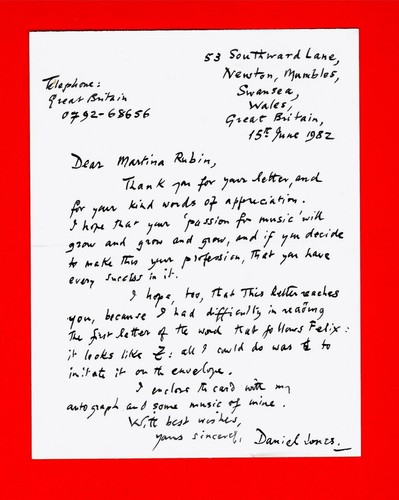 53 Southward Lane,
Newton, Mumbles,
Swansea,
Wales,
Great Britain,
15th June 1982
Telephone:
Great Britain
0792-68656
Dear Martina Rubin,
Thank you for your letter, and
for your kind words of appreciation.
I hope that your 'passion for music' will
grow and grow and grow, and if you decide
to make this your profession, that you have
every success in it.
I hope, too, that this letter reaches
you, because I had difficulty in reading
the first letter of the word that follows Felix:
it looks like Z: all I could do was to
imitate it on the envelope.
I enclose the card with my
autograph and some music of mine.
With best wishes,
yours sincerely, Daniel Jones.